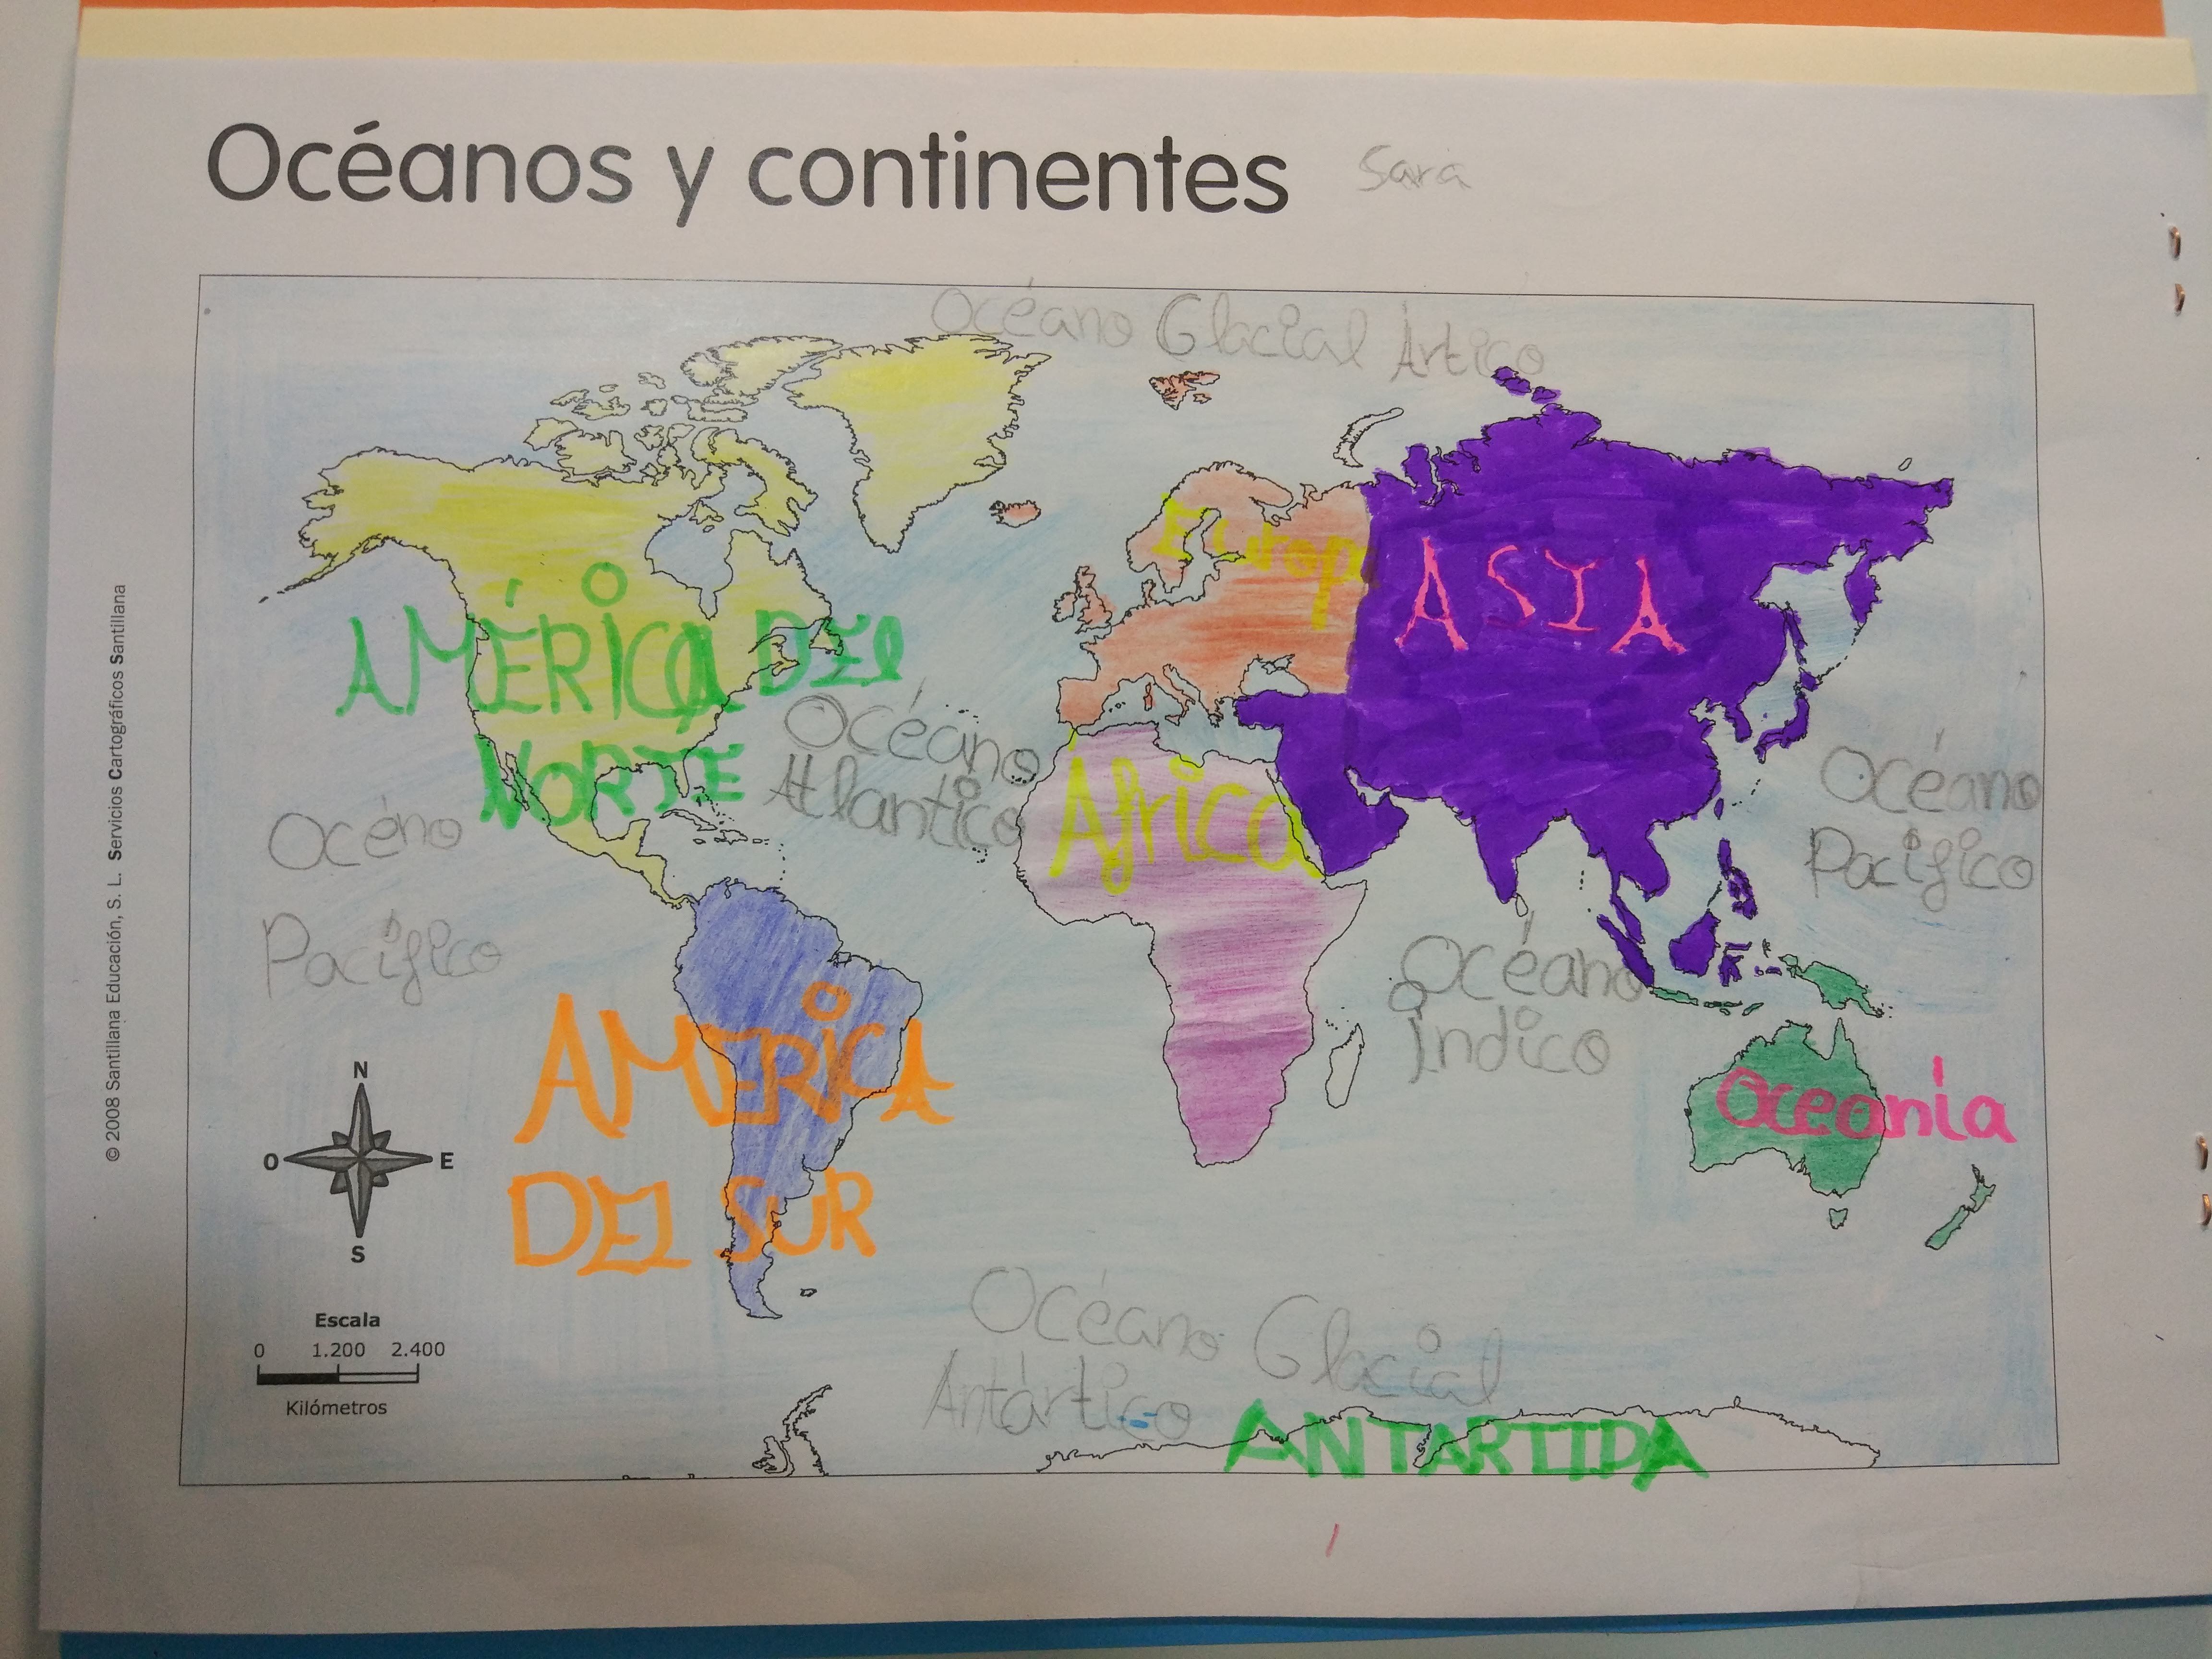 Océanos y continentes Sara
Océano Glacial Ártico
Europa
ASIA
AMÉRICA DEL
NORTE
Océano
Atlantico
Africa
Océno
Pacífico
Océano
Pacífico
Océano
Índico
AMERICA
DEL SUR
Oceanía
N
O E
S
Escala
0 1.200 2.400
Kilómetros
Océano Glacial
Antártico
ANTARTIDA
© 2008 Santillana Educación, S. L. Servicios Cartográficos Santillana